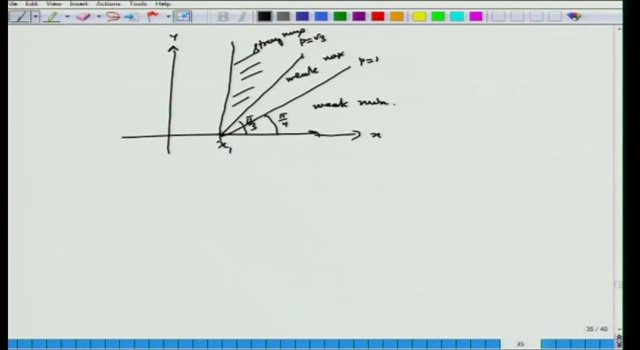 File Edit View Insert Actions Tools Help
Y
strong max
P=√3
weak max
P=1
weak min.
π/3
π/4
x₁
x
35 / 40
35